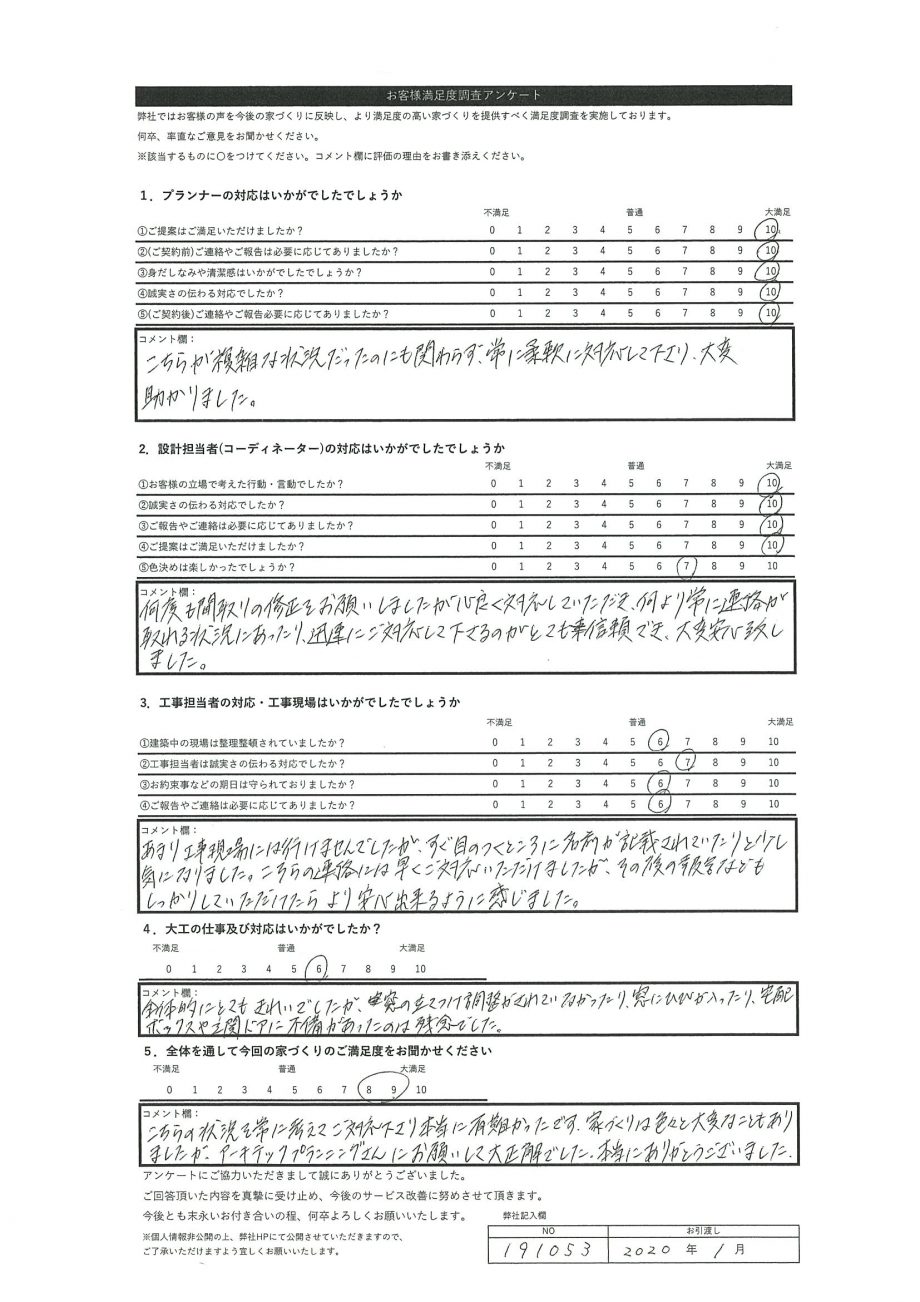 お客様満足度調査アンケート
弊社ではお客様の声を今後の家づくりに反映し、より満足度の高い家づくりを提供すべく満足度調査を実施しております。
何卒、率直なご意見をお聞かせください。
※該当するものに〇をつけてください。コメント欄に評価の理由をお書き添えください。
1．プランナーの対応はいかがでしたでしょうか
不満足 普通 大満足
①ご提案はご満足いただけましたか？ 0 1 2 3 4 5 6 7 8 9 10
②(ご契約前)ご連絡やご報告は必要に応じてありましたか？ 0 1 2 3 4 5 6 7 8 9 10
③身だしなみや清潔感はいかがでしたでしょうか？ 0 1 2 3 4 5 6 7 8 9 10
④誠実さの伝わる対応でしたか？ 0 1 2 3 4 5 6 7 8 9 10
⑤(ご契約後)ご連絡やご報告必要に応じてありましたか？ 0 1 2 3 4 5 6 7 8 9 10
コメント欄：
こちらが複雑な状況だったのにも関わらず、常に柔軟に対応して下さり、大変
助かりました。
2．設計担当者(コーディネーター)の対応はいかがでしたでしょうか
不満足 普通 大満足
①お客様の立場で考えた行動・言動でしたか？ 0 1 2 3 4 5 6 7 8 9 10
②誠実さの伝わる対応でしたか？ 0 1 2 3 4 5 6 7 8 9 10
③ご報告やご連絡は必要に応じてありましたか？ 0 1 2 3 4 5 6 7 8 9 10
④ご提案はご満足いただけましたか？ 0 1 2 3 4 5 6 7 8 9 10
⑤色決めは楽しかったでしょうか？ 0 1 2 3 4 5 6 7 8 9 10
コメント欄：
何度も間取りの修正をお願いしましたが心良く対応していただき、何より常に連絡が
取れる状況にあったり、迅速にご対応して下さるのがとても信頼でき、大変安心致し
ました。
3．工事担当者の対応・工事現場はいかがでしたでしょうか
不満足 普通 大満足
①建築中の現場は整理整頓されていましたか？ 0 1 2 3 4 5 6 7 8 9 10
②工事担当者は誠実さの伝わる対応でしたか？ 0 1 2 3 4 5 6 7 8 9 10
③お約束事などの期日は守られておりましたか？ 0 1 2 3 4 5 6 7 8 9 10
④ご報告やご連絡は必要に応じてありましたか？ 0 1 2 3 4 5 6 7 8 9 10
コメント欄：
あまり工事現場には行けませんでしたが、すぐ目のつくところに名前が記載されていたりと少し
気になりました。こちらの連絡には早くご対応いただけましたが、その後の報告なども
しっかりしていただけたら より安心出来るように感じました。
4．大工の仕事及び対応はいかがでしたか？
不満足 普通 大満足
0 1 2 3 4 5 6 7 8 9 10
コメント欄：
全体的にとても きれいでしたが、窓の立てつけ調整がされていなかったり、窓にひびが入ったり、宅配
ボックスや玄関ドアに不備があったのは残念でした。
5．全体を通して今回の家づくりのご満足度をお聞かせください
不満足 普通 大満足
0 1 2 3 4 5 6 7 8 9 10
コメント欄：
こちらの状況を常に考えてご対応下さり本当に有難かったです。家づくりは色々と大変なこともあり
ましたが、アーキテックプランニングさんにお願いして大正解でした。本当にありがとうございました。
アンケートにご協力いただきまして誠にありがとうございました。
ご回答頂いた内容を真摯に受け止め、今後のサービス改善に努めさせて頂きます。
今後とも末永いお付き合いの程、何卒よろしくお願いいたします。
弊社記入欄
※個人情報非公開の上、弊社HPにて公開させていただきますので、
ご了承いただけますよう宜しくお願いいたします。
NO お引渡し
191053 2020 年 1 月